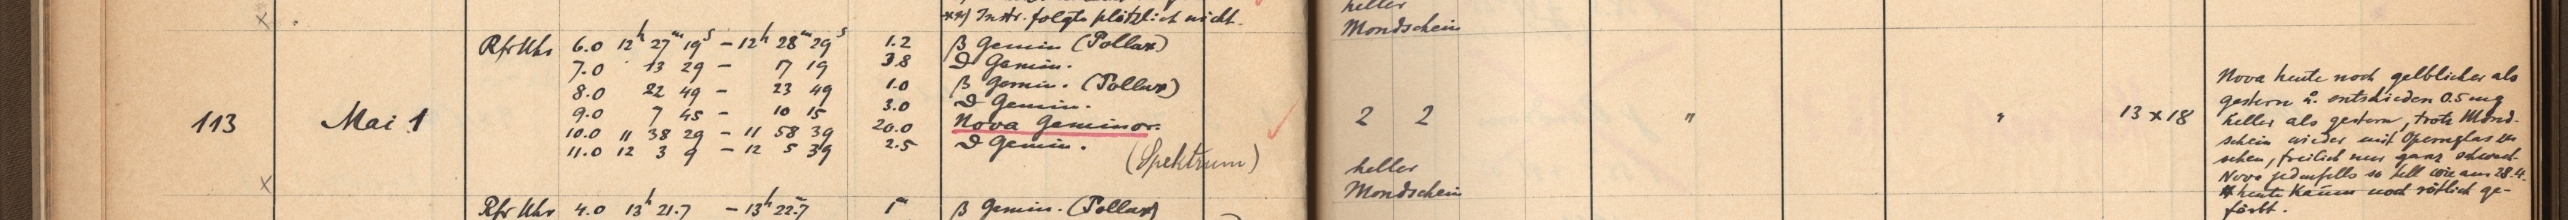 heller
**) Instr. folgte plötzlich nicht.
Mondschein
Rfr Uhr 6.0 12h 27m 19s – 12h 28m 29s 1.2 β Gemin (Pollux)
7.0 13 29 – 17 19 3.8 ϑ Gemin.
8.0 22 49 – 23 49 1.0 β Gemin. (Pollux)
9.0 7 45 – 10 15 3.0 ϑ Gemin.
113 Mai 1 2 2 " " 13 x 18
10.0 11 38 29 – 11 58 39 20.0 Nova Geminor.
11.0 12 3 9 – 12 5 39 2.5 ϑ Gemin.
(Spektrum)
heller
Mondschein
Nova heute noch gelblicher als
gestern u. entschieden 0.5 mg
heller als gestern, trotz Mond-
schein wieder mit Opernglas zu
sehen, freilich nur ganz schwach.
Nova jedenfalls so hell wie am 28.4.
heute kaum noch rötlich ge-
färbt.
Rfr Uhr 4.0 13h 21.7 – 13h 22.7 1m β Gemin. (Pollux)